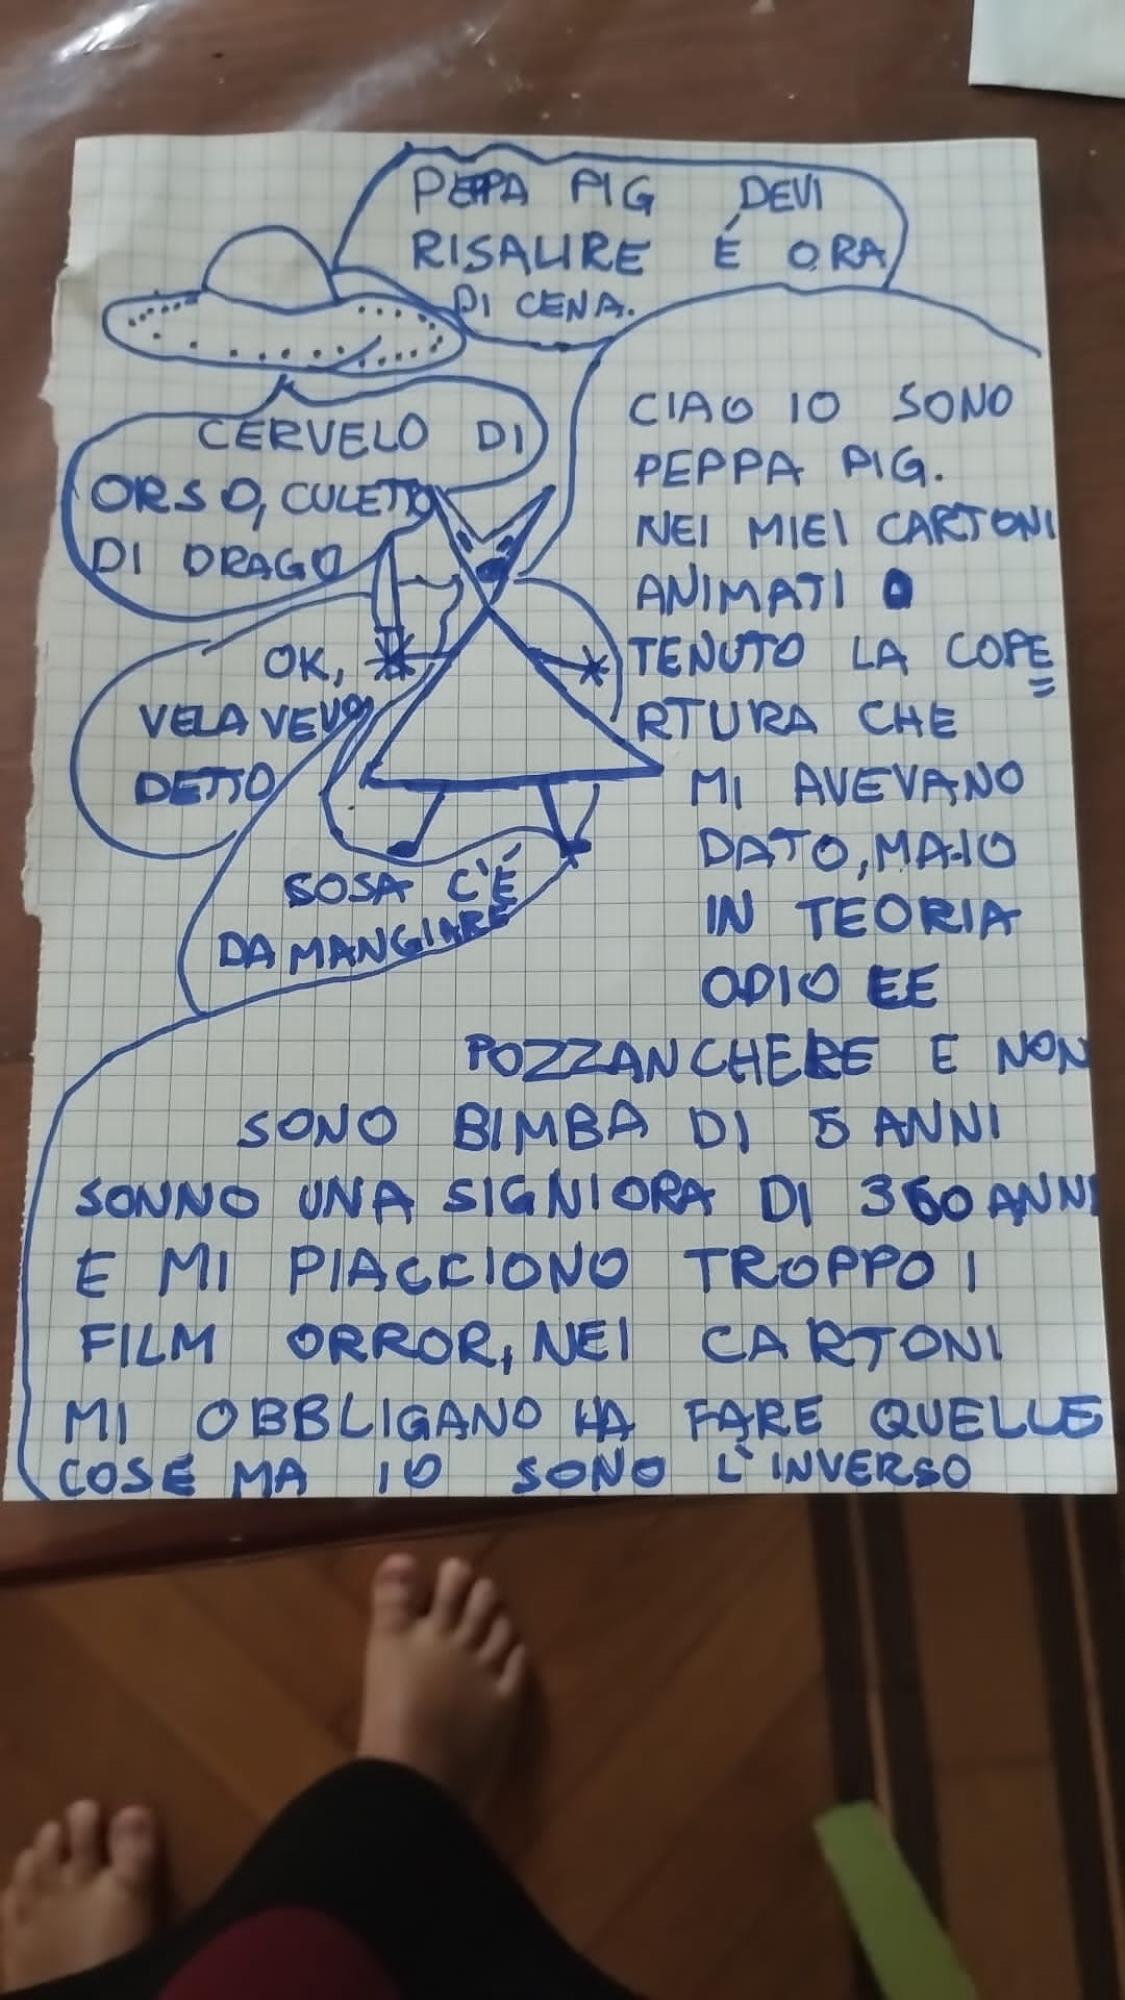 PEPPA PIG DEVI
RISALIRE É ORA
DI CENA.
CERVELO DI
ORSO, CULETTO
DI DRAGO
OK,
VELA VEVO
DETTO
SOSA C'É
DA MANGIARE
CIAO IO SONO
PEPPA PIG.
NEI MIEI CARTONI
ANIMATI O
TENUTO LA COPE
RTURA CHE
MI AVEVANO
DATO, MA IO
IN TEORIA
ODIO LE
POZZANCHERE E NON
SONO BIMBA DI 5 ANNI
SONNO UNA SIGNIORA DI 360 ANNI
E MI PIACCIONO TROPPO I
FILM ORROR, NEI CARTONI
MI OBBLIGANO HA FARE QUELLE
COSE MA IO SONO L'INVERSO